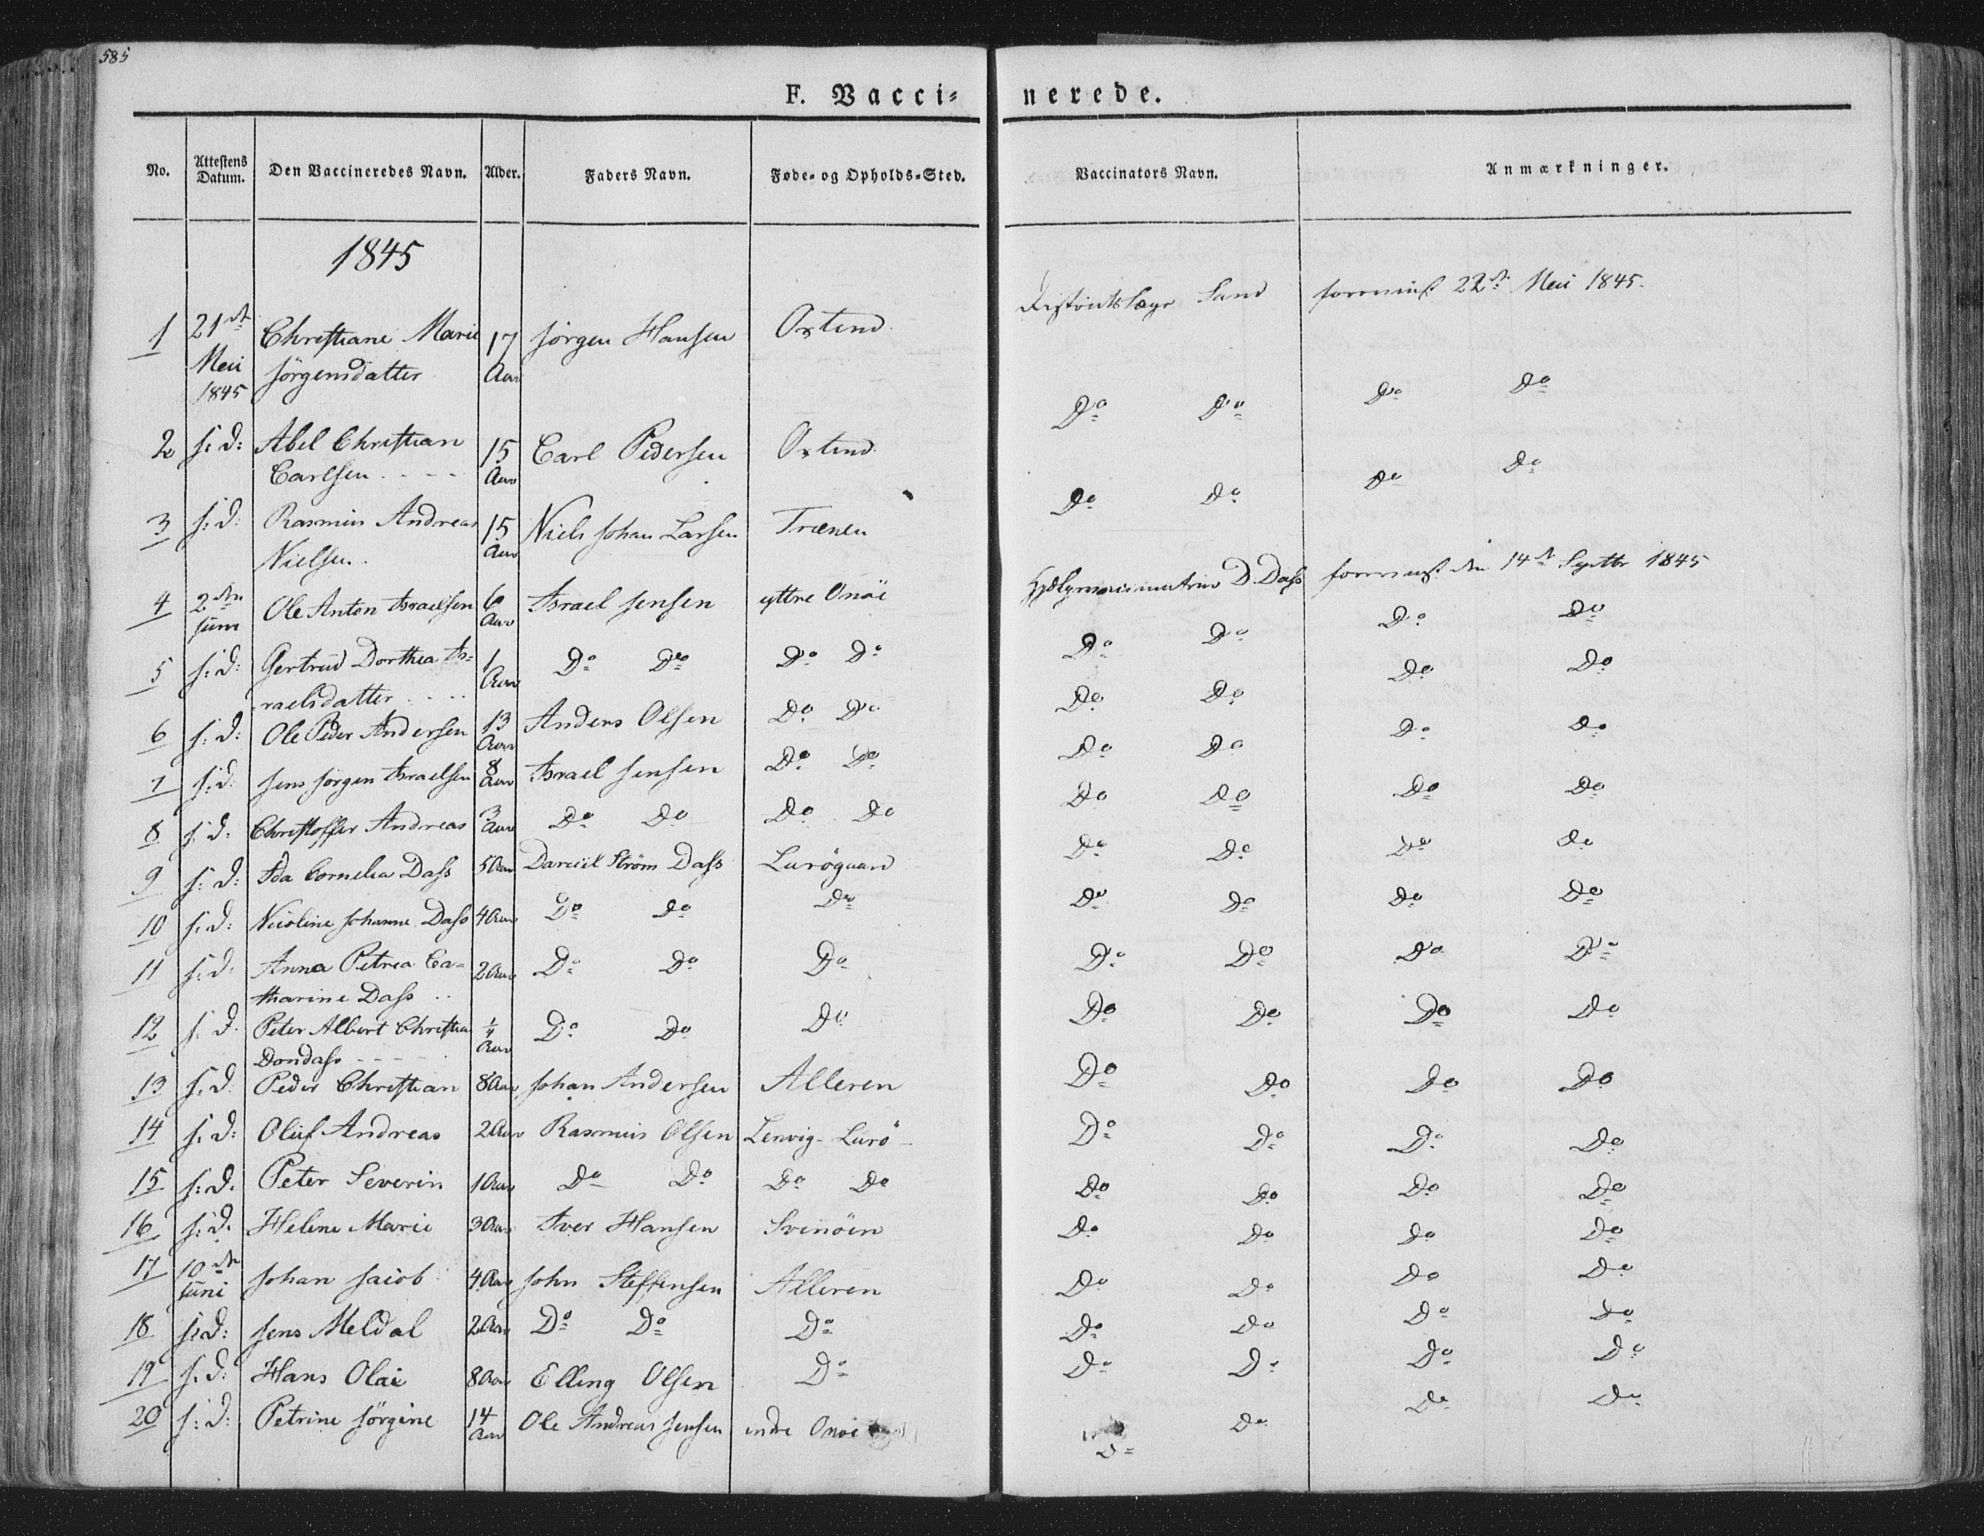 585
F. Vacci= nerede.
No. Attestens Datum. Den Vaccineredes Navn. Alder. Faders Navn. Føde- og Opholds-Sted. Vaccinators Navn. Anmærkninger.
1845
1 21de Mai 1845 Christiane Marie Jörgensdatter 17 Aar Jörgen Hansen Oxtind Districtslæge Sand 22de Mai 1845.
2 s: d: Abel Christian Carlsen 15 Aar Carl Pedersen Oxtind Do Do Do Do
3 s: d: Rasmus Andreas Nielsen 15 Aar Niels Johan Larsen Trænen Do Do Do Do
4 2den Juni Ole Anton Israelsen 6 Aar Israel Jensen yttre Onöe D. Dass den 14de Septbr 1845
5 s: d: Gertrud Dorthea Is=raelsdatter 1 Aar Do Do Do Do Do Do Do Do
6 s: d: Ole Peder Andersen 13 Aar Anders Olsen Do Do Do Do Do Do
7 s: d: Jens Jörgen Israelsen 8 Aar Israel Jensen Do Do Do Do Do Do
8 s: d: Christoffer Andreas 3 Aar Do Do Do Do Do Do Do Do
9 s: d: Ida Cornelia Dass 5 Aar Daniel Ström Dass Luröguard Do Do Do Do
10 s: d: Nicoline Johanne Dass 4 Aar Do Do Do Do Do Do Do
11 s: d: Anna Petrea Ca=tharine Dass 2 Aar Do Do Do Do Do Do Do
12 s: d: Peter Albert Christian Dondass 1/4 Aar Do Do Do Do Do Do Do
13 s: d: Peder Christian 8 Aar Johan Andersen Alleren Do Do Do Do
14 s: d: Oluf Andreas 2 Aar Rasmus Olsen Lenvig - Lurö Do Do Do Do
15 s: d: Peter Severin 1 Aar Do Do Do Do Do Do Do Do
16 s: d: Helene Marie 3 Aar Iver Hansen Svinöen Do Do Do Do
17 10de Juni Johan Jacob 4 Aar John Steffensen Alleren Do Do Do Do
18 s: d: Jens Meldal 2 Aar Do Do Do Do Do Do Do
19 s: d: Hans Olai 8 Aar Elling Olsen Do Do Do Do Do
20 s: d: Petrine Jörgine 14 Aar Ole Andreas Jensen indre Onöe Do Do Do Do